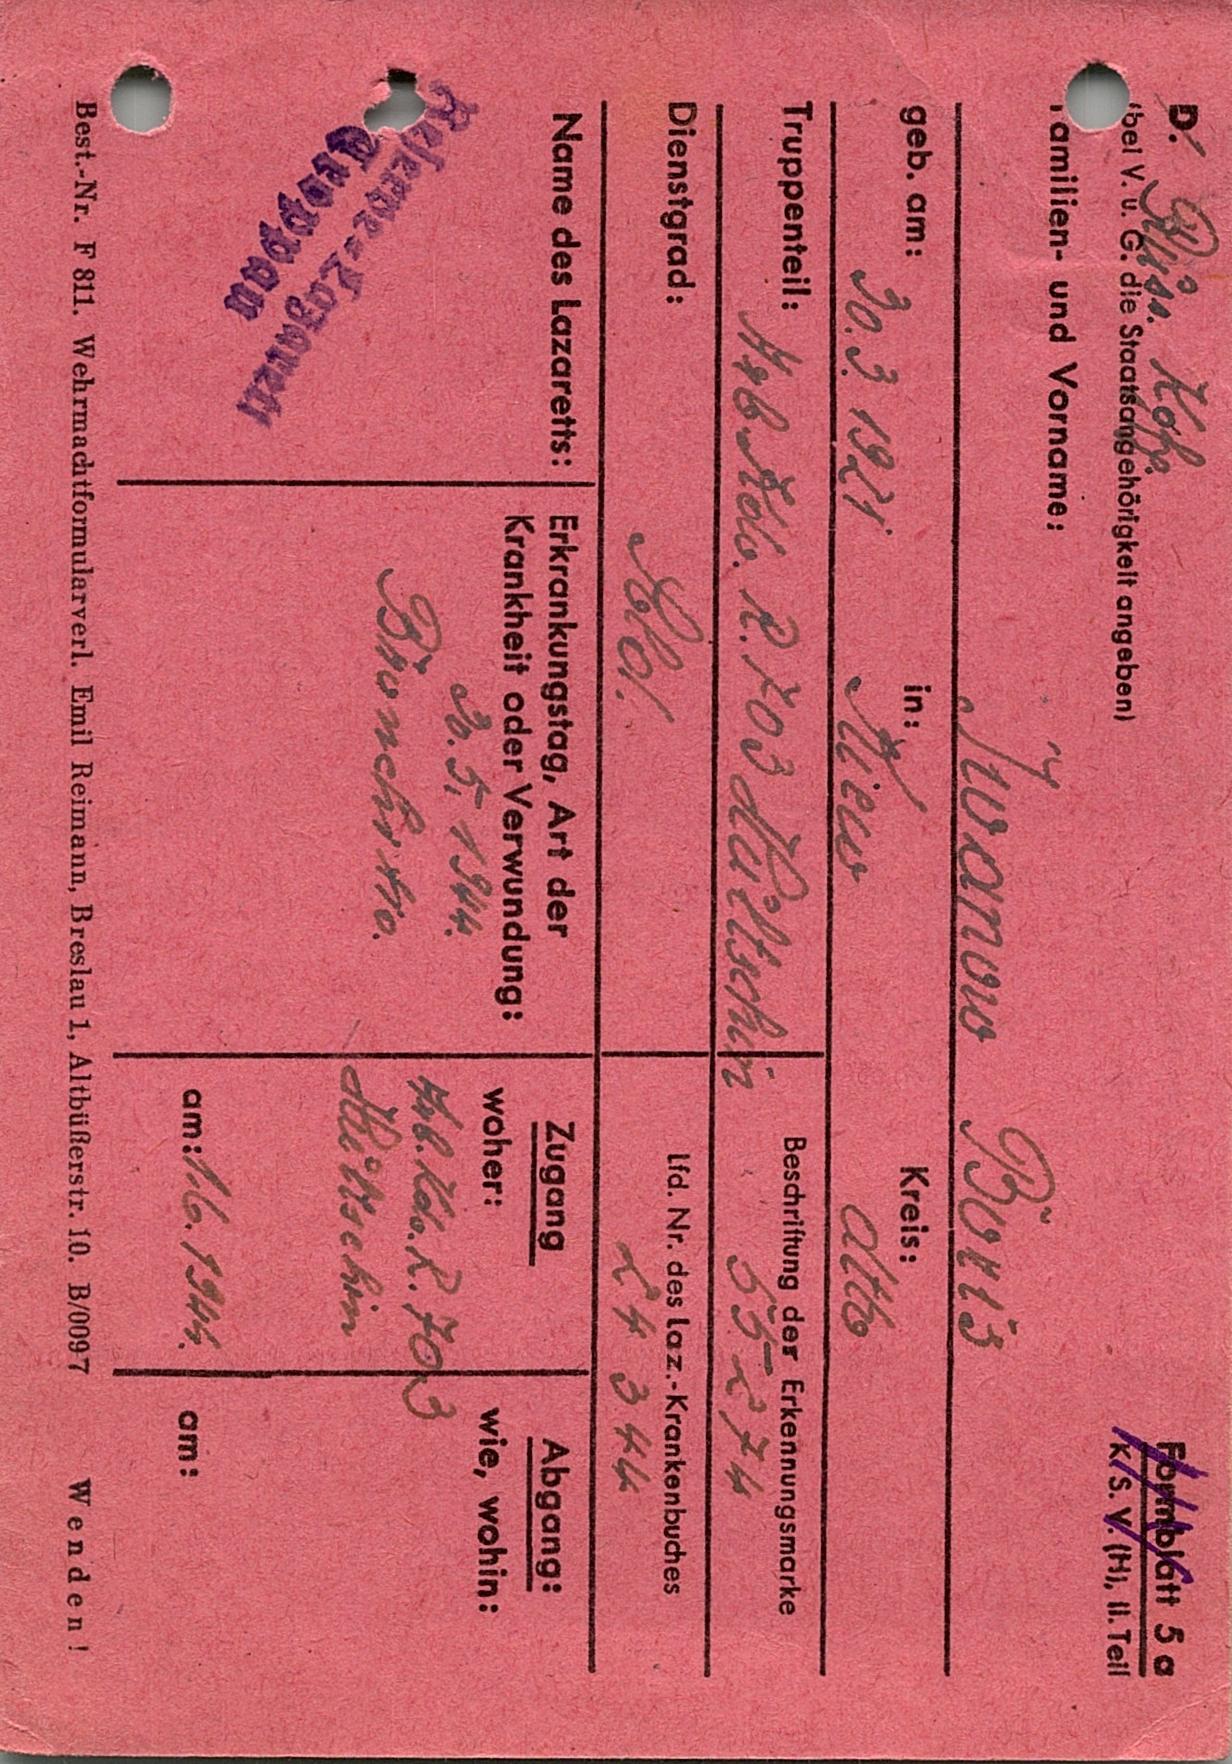 D. Russ. Kgf. Formblatt 5 a
(bei V. u. G. die Staatsangehörigkeit angeben) K. S. V. (H), II. Teil
Familien- und Vorname:
Iwanow Boris
geb. am: 30.3.1921 in: Kiew Kreis: dtto
Truppenteil: Arb. Kdo. R. 703 Hultschin Beschriftung der Erkennungsmarke
55274
Dienstgrad: Sold. Lfd. Nr. des Laz.-Krankenbuches
24344
Name des Lazaretts: Erkrankungstag, Art der Krankheit oder Verwundung: Zugang woher: Abgang: wie, wohin:
Reserve-Lazarett
Troppau
5.1944.
Bronchitis.
Arb. Kdo. R. 703
Hultschin
am: 1.6.1944. am:
Best.-Nr. F 811. Wehrmachtformularverl. Emil Reimann, Breslau 1, Altbüßerstr. 10. B/0097 Wenden!